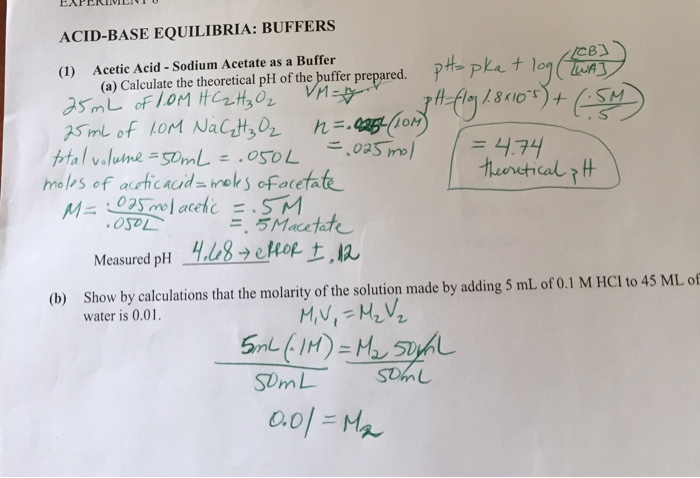 EXPERIMENT 6
ACID-BASE EQUILIBRIA: BUFFERS
(1) Acetic Acid - Sodium Acetate as a Buffer
(a) Calculate the theoretical pH of the buffer prepared.
pH = pka + log ([CB]/[WA])
25mL of 1.0M HC2H3O2 VM = n
pH = -(log 1.8x10-5) + (.5M/.5)
25ml of 1.0M NaC2H3O2 n = .025 (1.0M)
= .025 mol
= 4.74
theoretical pH
total volume = 50mL = .050L
moles of acetic acid = moles of acetate
M = .025 mol acetic / .050L = .5M
= .5M acetate
Measured pH 4.68 → error ± .12
(b) Show by calculations that the molarity of the solution made by adding 5 mL of 0.1 M HCl to 45 ML of
water is 0.01.
M1V1 = M2V2
5mL (.1M) = M2 50mL
50mL 50mL
0.01 = M2